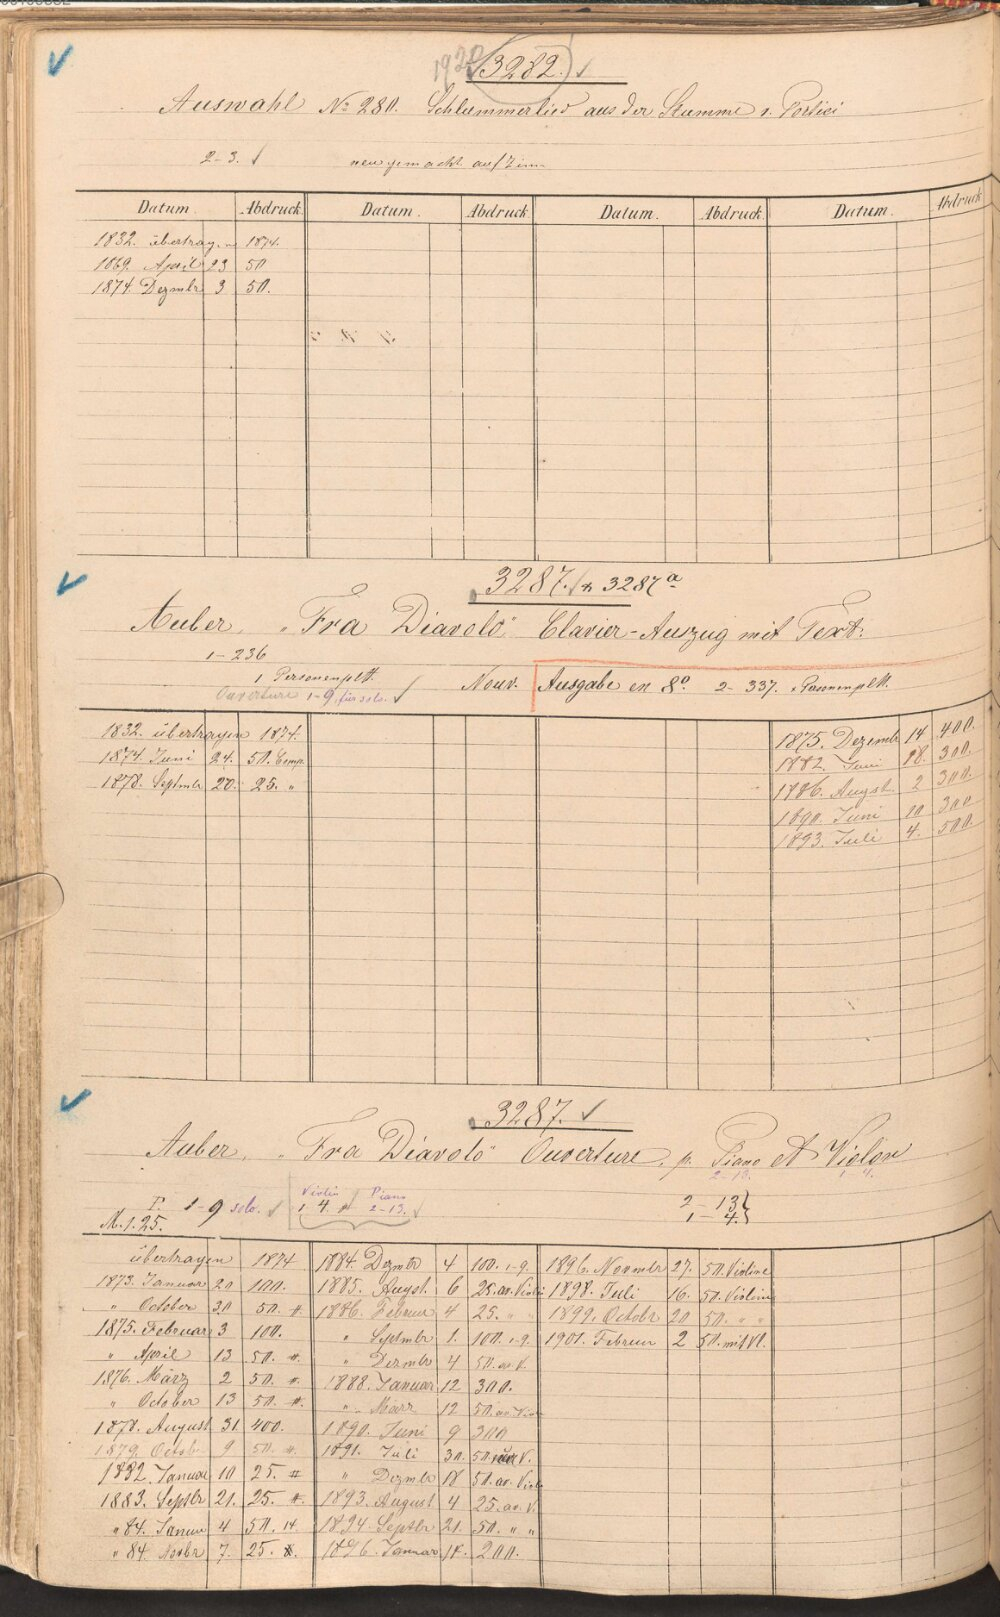 1922 3282. ✓
Auswahl No 280. Schlummerlied aus der Stumme v. Portici
2-3. ✓ neu gemacht auf Zinn
Datum. Abdruck. Datum. Abdruck. Datum. Abdruck. Datum. Abdruck
1832. übertragen 1874.
1869. April 23 50
1874. Dezmbr 3 50.
3287. ✓ & 3287a
Auber, "Fra Diavolo" Clavier-Auszug mit Text.
1-236
1 Personenpltt.
Ouverture 1-9 für solo. ✓
Nouv. Ausgabe en 8o. 2-337. 1 Personenpltt.
1832. übertragen 1874.
1874. Juni 24. 50. Comp.
1878. Septmbr 20. 25. "
1875. Dezembr 14 400.
1882. Juni 18. 300.
1886. Augst. 2 300.
1890. Juni 10 300
1893. Juli 4. 500.
3287. ✓
Auber, "Fra Diavolo" Ouverture, p. Piano et Violon
2-13. 1-4.
P. 1-9 solo. ✓ Violin 1 4. Piano 2-13.
2-13
1-4.
M. 1.25.
übertragen 1874
1873. Januar 20 100.
" October 30 50. #
1875. Februar 3 100.
" April 13 50. #.
1876. März 2 50. #.
" October 13 50. #.
1878. August 31. 400.
1879. Octobr 9 50. #.
1882. Januar 10 25. #
1883. Septbr 21. 25. #.
" 84. Januar 4 50. #.
" 84. Novbr 7. 25. #.
1884. Dezmbr 4 100. 1-9.
1885. Augst. 6 25. av. Violi
1886. Februar 4 25. " "
" Septmbr 1. 100. 1-9.
" Dezmbr 4 50. av. V.
1888. Januar 12 300.
" März 12 50. av. Vio
1890. Juni 9 300
1891. Juli 30. 50 V.
" Dezmbr 18 50. av. Viol
1893. August 4 25. av. V.
1894. Septbr 21. 50. " "
1896. Januar 200.
1896. Novmbr 27. 50. Violine
1898. Juli 16. 50. Violine
1899. Octobr 20 50. " "
1901. Februar 2 50. mit Vl.